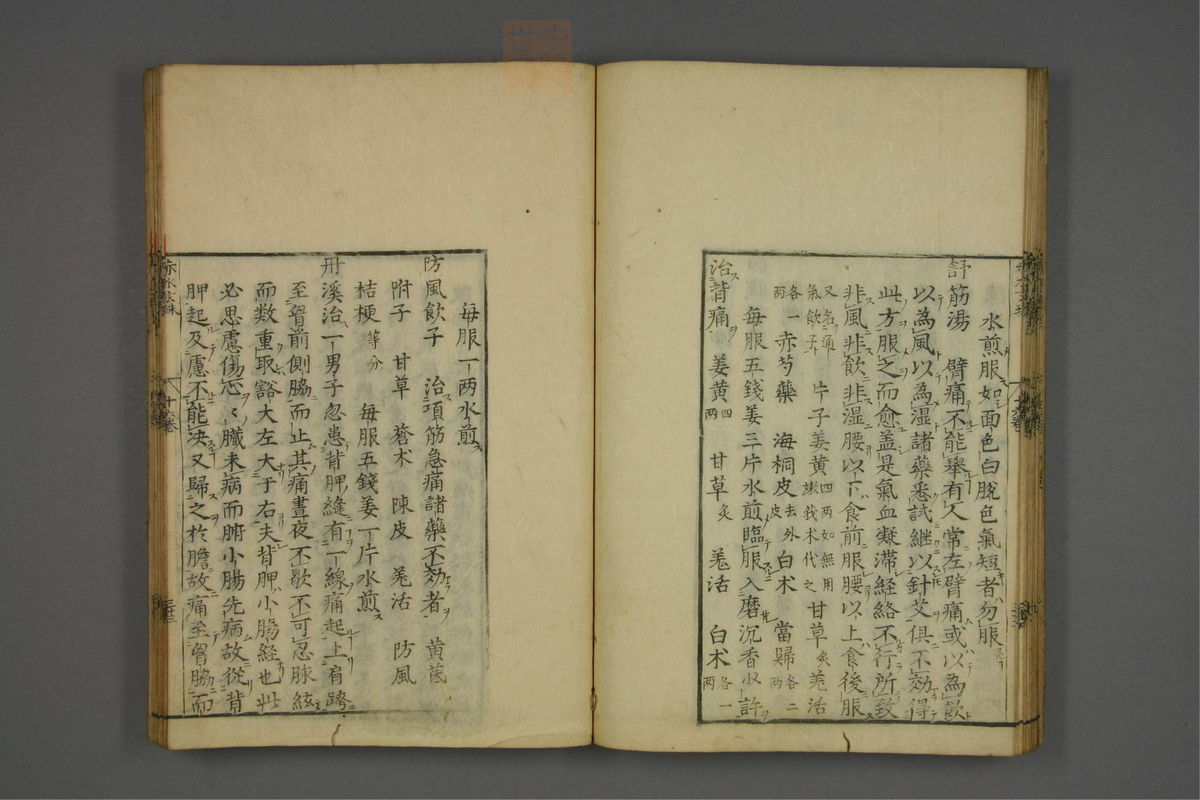 水煎服如面色白脱色氣短者勿服
舒筋湯 臂痛不能舉有人常左臂痛或以為飲
以為風以為湿諸藥悉試継以針艾俱不効得
此方服之而愈盖是氣血凝滞経絡不行所致
非風非飲非湿腰以下食前服腰以上食後服
又名通氣飲子 片子姜黄四両如無用嫩莪术代之 甘草炙 羗活
各一両 赤芍藥 海桐皮去外皮 白术 當歸各二両
每服五錢姜三片水煎臨服入磨沉香少許
治背痛 姜黄四両 甘草炙 羗活 白术各一両
每服一両水煎
防風飲子 治項筋急痛諸藥不効者 黄茋
附子 甘草 蒼术 陳皮 羗活 防風
桔梗等分 每服五錢姜一片水煎
丹溪治一男子忽患背胛縫有一線痛起上肩跨
至胷前側脇而止其痛晝夜不歇不可忍脉絃
而数重取豁大左大于右夫背胛小腸経也此
必思慮傷心〻臓未病而腑小腸先病故從背
胛起及慮不能决又歸之於膽故痛至胷脇而
赤水玄珠
十六卷